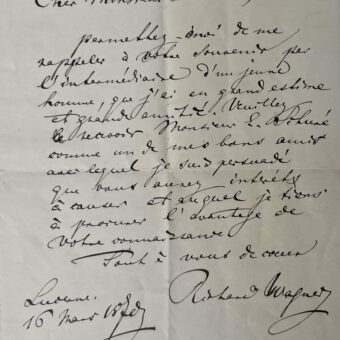 Cher Monsieur
permettez-moi de me
rappeler à votre souvenir par
l'intermédiaire d'un jeune
homme, que j'ai en grand estime
et grande amitié. Veuillez
le recevoir Monsieur L.
comme un de mes bons amis
avec lequel je suis persuadé
que vous aurez intérêts
à causer et auquel je tiens
à procurer l'avantage de
votre connaissance.
Tout à vous de cœur
Richard Wagner
Lucerne.
16 Mars